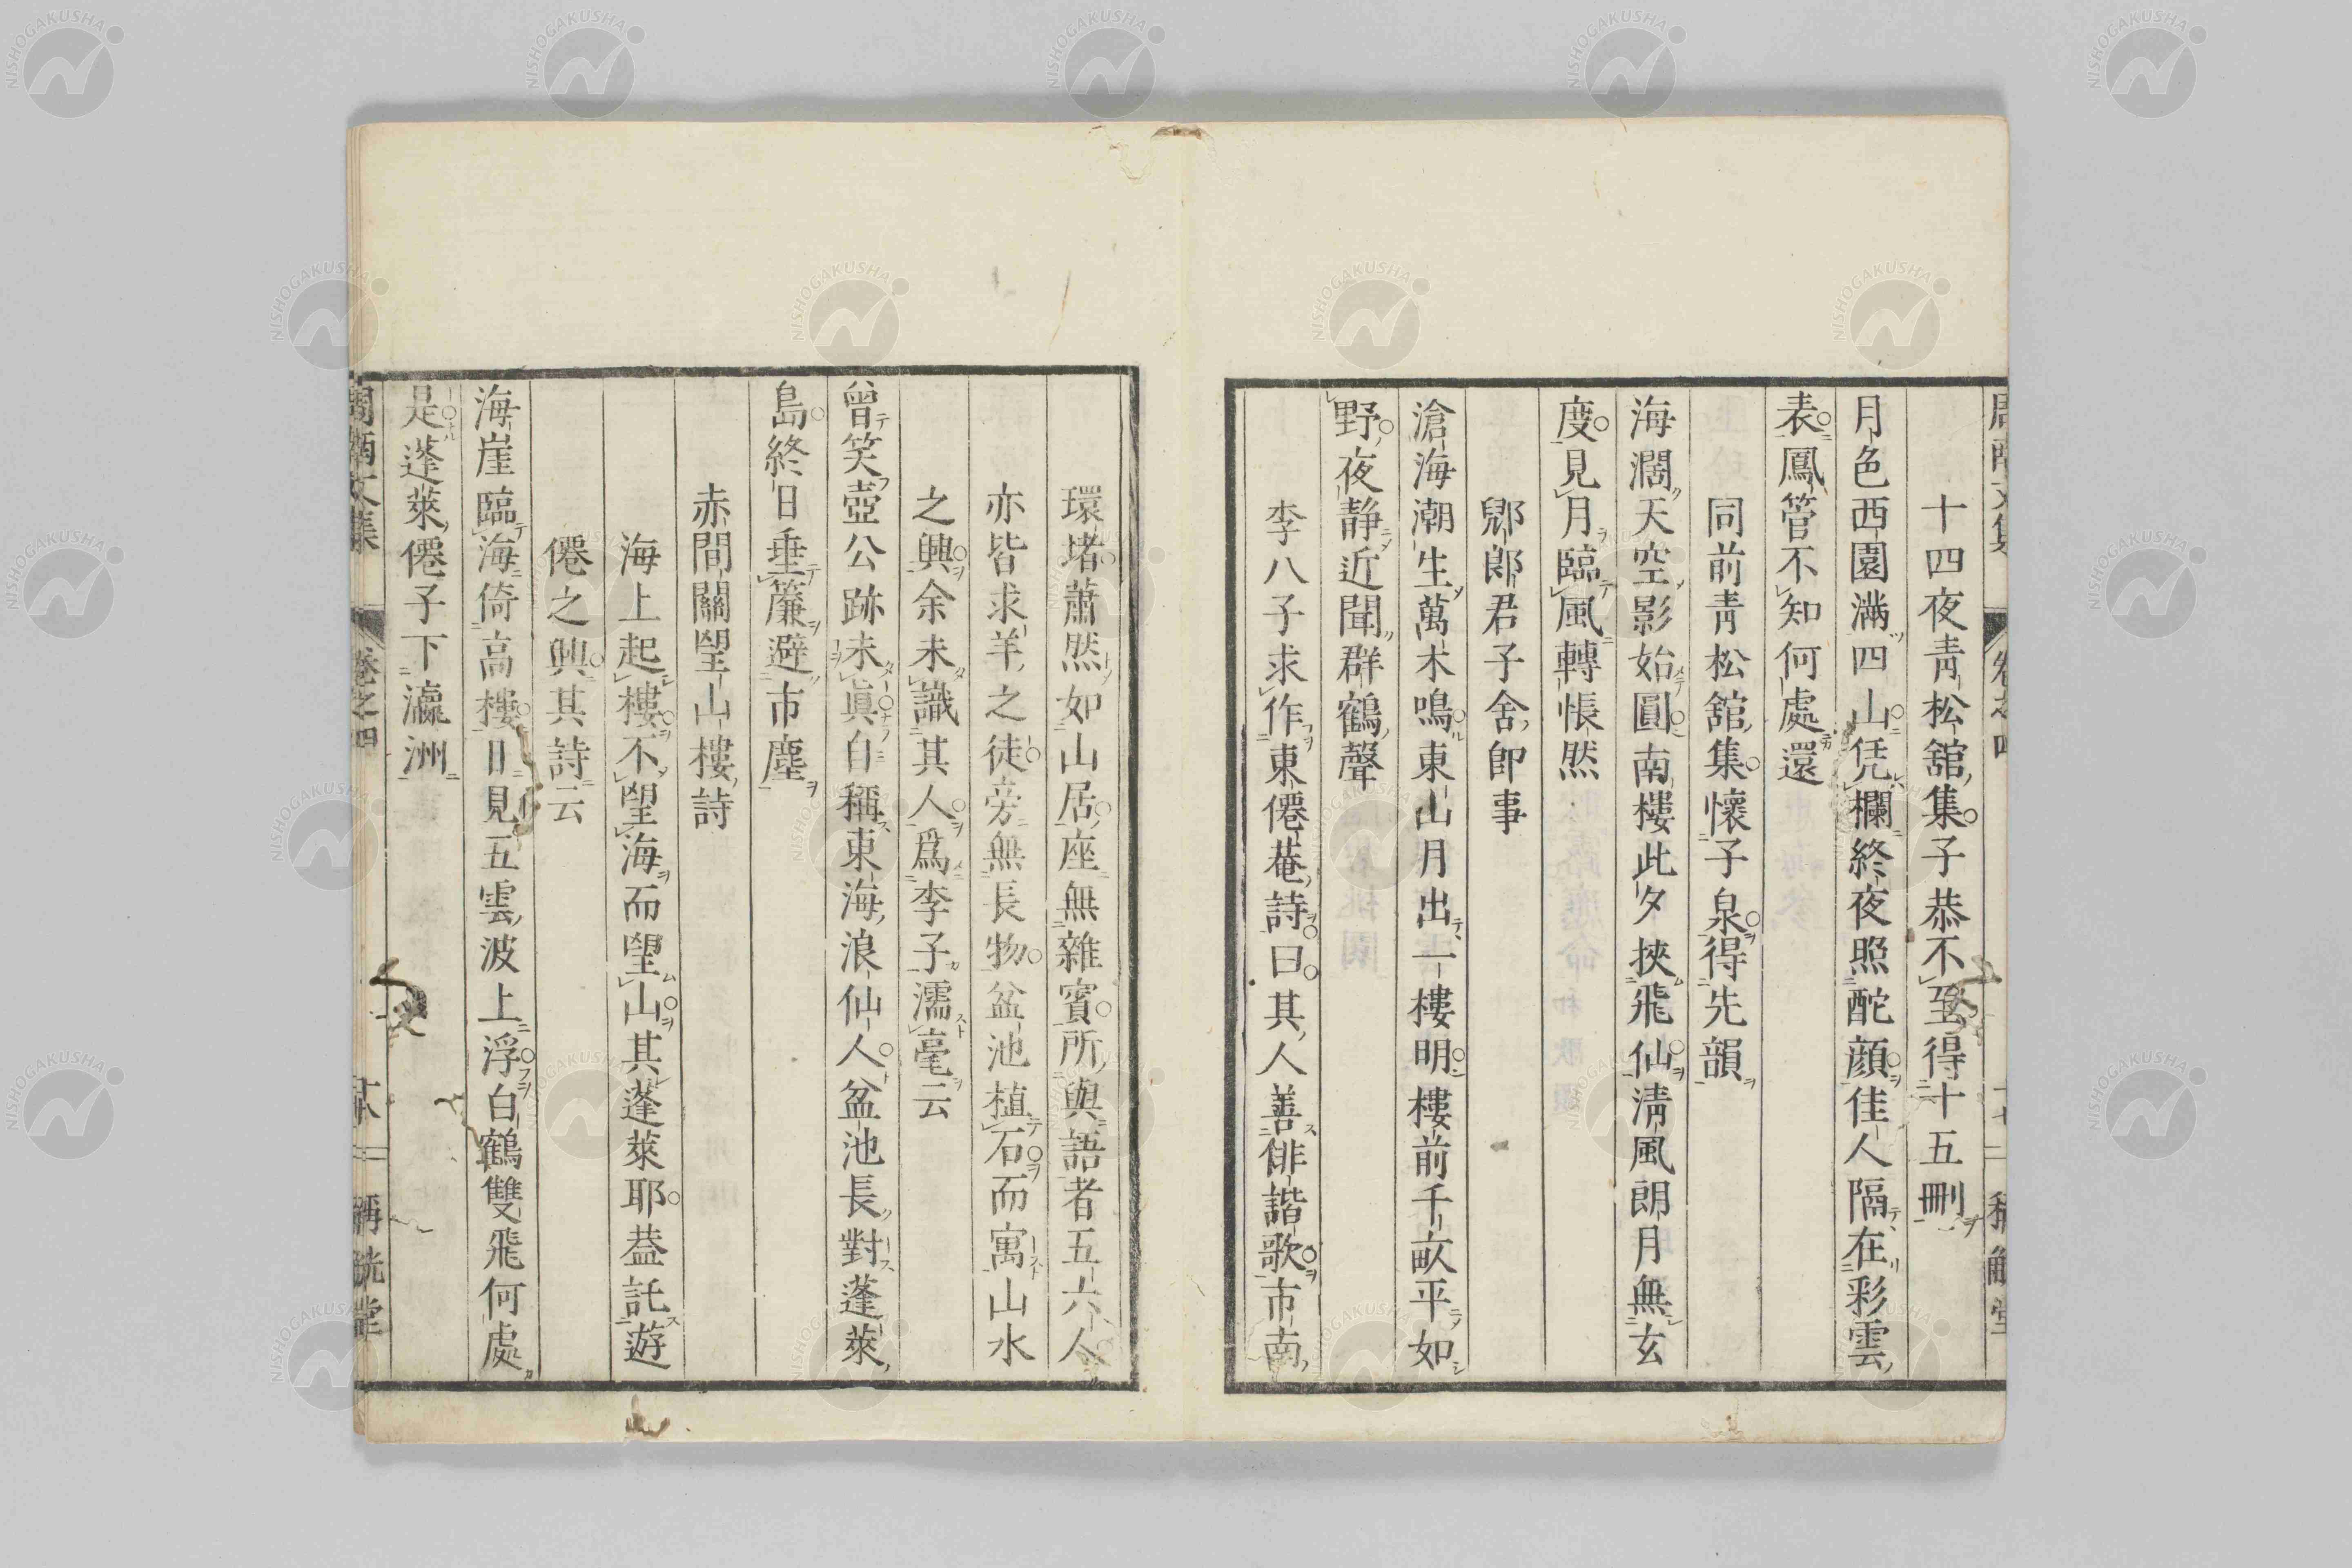 十四夜靑松舘集子恭不至得十五刪
月色西園滿四山凭欄終夜照酡顔佳人隔在彩雲
表鳳管不知何處還
同前靑松舘集懷子泉得先韻
海濶天空影始圓南樓此夕挾飛仙淸風朗月無玄
度見月臨風轉悵然
郢郎君子舍卽事
滄海潮生萬木鳴東山月出一樓明樓前千畝平如
野夜静近聞群鶴聲
李八子求作東僊菴詩曰其人善俳諧歌市南
環堵蕭然如山居座無雜賓所與語者五六人
亦皆求羊之徒旁無長物盆池植石而寓山水
之興余未識其人爲李子濡毫云
曾笑壺公跡未眞自稱東海浪仙人盆池長對蓬萊
島終日垂簾避市塵
赤間關望山樓詩
海上起樓不望海而望山其蓬萊耶葢託遊
僊之興其詩云
海崖臨海倚高樓日見五雲波上浮白鶴雙飛何處
是蓬萊僊子下瀛洲
周南文集 卷之四
NISHOGAKUSHA